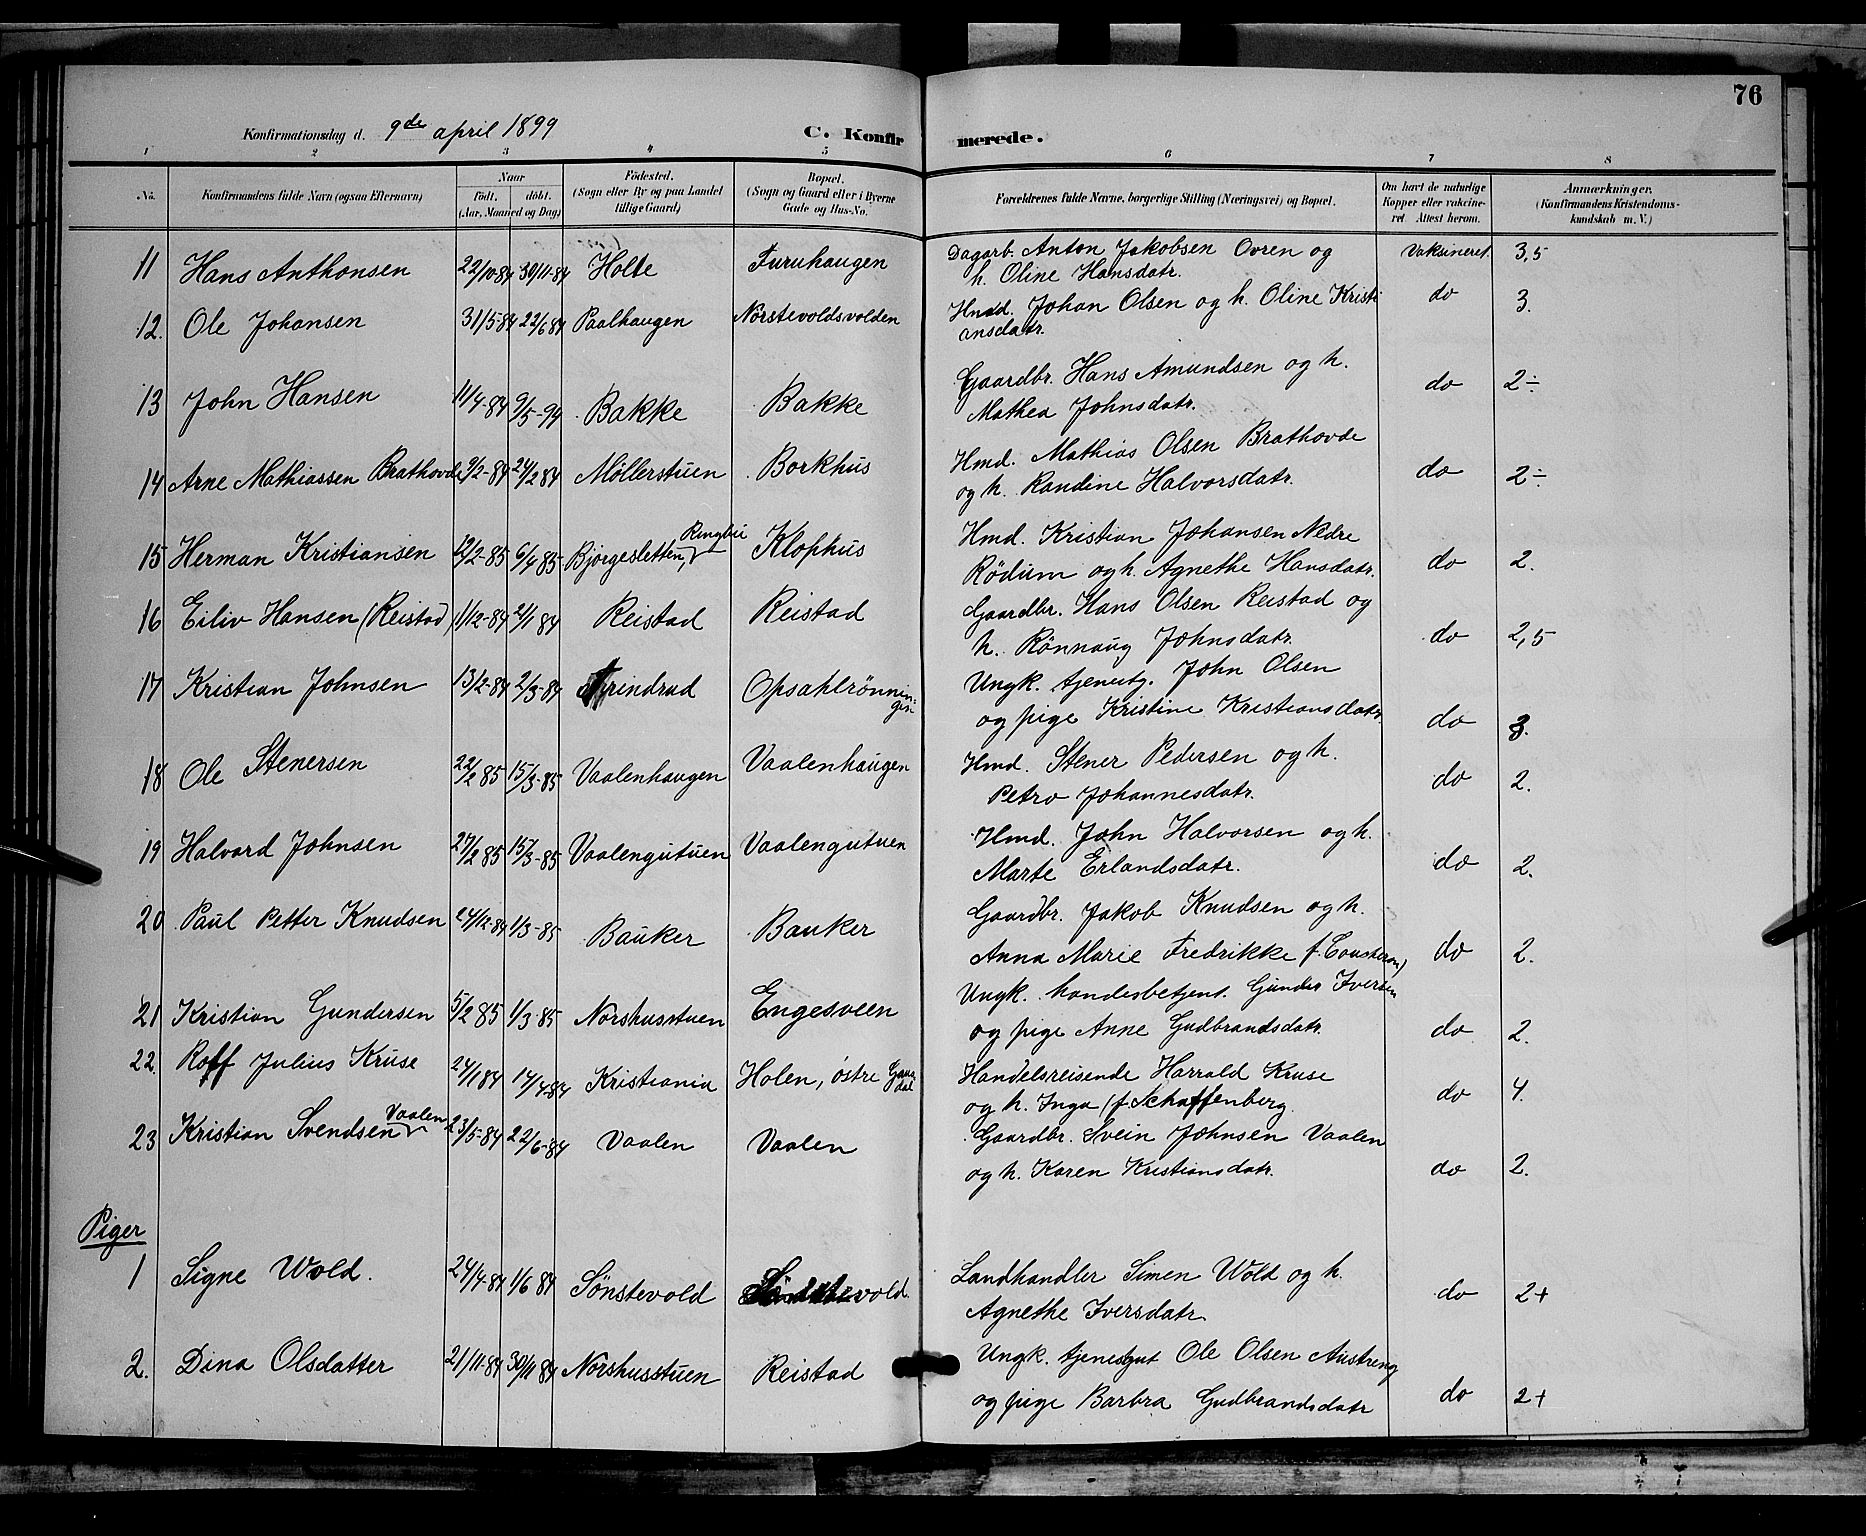 76
Konfirmationsdag d. 9de april 1899 C. Konfirmerede.
1 2 3 4 5 6 7 8
No. Konfirmandens fulde Navn (ogsaa Efternavn) Naar født, døbt. (Aar, Maaned og Dag) Fødested. (Sogn eller By og paa Landet tillige Gaard) Bopæl. (Sogn og Gaard eller i Byerne Gade og Hus-No. Forældrenes fulde Navne, borgerlige Stilling (Næringsvei) og Bopæl. Om havt de naturlige Kopper eller vakcineret. Attest herom. Anmærkninger. (Konfirmandens Kristendomskundskab m. V.)
11 Hans Anthonsen 22/10-84 30/11-84 Holte Furuhaugen Dagarb. Anton Jakobsen Ovren og
h. Oline Hansdatr. Vaksineret. 3,5
12. Ole Johansen 31/5-84 22/6 84 Paalhaugen Nørstevoldsvolden Hmd. Johan Olsen og h. Oline Kristi
ansdatr. do 3.
13 John Hansen 11/4-84 9/5-94 Bakke Bakke Gaardbr. Hans Amundsen og h.
Mathea Johnsdatr. do 2÷
14 Arne Mathiassen Brathovde 9/2-84 24/2 84 Møllerstuen Borkhus Hmd. Mathias Olsen Brathovde
og h. Randine Halvorsdatr. do 2÷
15 Herman Kristiansen 12/2-85 6/4 85 Bjørgesletten, Ringbu Klophus Hmd. Kristian Johansen Nedre
Rödum og h. Agnethe Hansdatr. do 2.
16 Eiliv Hansen (Reistad) 1/12-84 2/1 84 Reistad Reistad Gaardbr. Hans Olsen Reistad og
h. Rönnaug Johnsdatr. do 2,5
17 Kristian Johnsen 13/2-84 2/3-84 Opsahlrönnin-
gen Ungk. tjenestg. John Olsen
og pige Kristine Kristiansdatr. do 3.
18 Ole Stenersen 22/2 85 15/3-85 Vaalenhaugen Vaalenhaugen Hmd. Stener Pedersen og h.
Petro Johannesdatr. do 2.
19 Halvard Johnsen 27/2 85 15/3-85 Vaalengutuen Vaalengutuen Hmd. John Halvorsen og h.
Marte Erlandsdatr. do 2.
20 Paul Petter Knudsen 24/12-84 1/3-85 Bauker Bauker Gaardbr. Jakob Knudsen og h.
Anna Marie Fredrikke do 2.
21 Kristian Gundersen 5/2 85 1/3-85 Norshusstuen Engesveen Ungk. handesbetjent. Gunder Iversen
og pige Anne Gudbrandsdatr. do 2.
22. Roff Julius Kruse 24/1 84 14/4-84 Kristiania Holen, östre Gaus
dal Handelsreisende Harrald Kruse
og h. Inga (f. Schaffenberg. do 4.
23 Kristian Svendsen Vaalen 23/5-84 22/6-84 Vaalen Vaalen Gaardbr. Svein Johnsen Vaalen
og h. Karen Kristiansdatr. do 2.
Piger
1 Signe Wold. 24/4-84 1/6 84 Sønstevold Söndstevold. Landhandler Simen Wold og h.
Agnethe Iversdatr do 2+
2. Dina Olsdatter 21/11-84 30/11 84 Norshusstuen Reistad Ungk. tjenestgut Ole Olsen Austreng
og pige Barbra Gudbrandsdatr do 2+